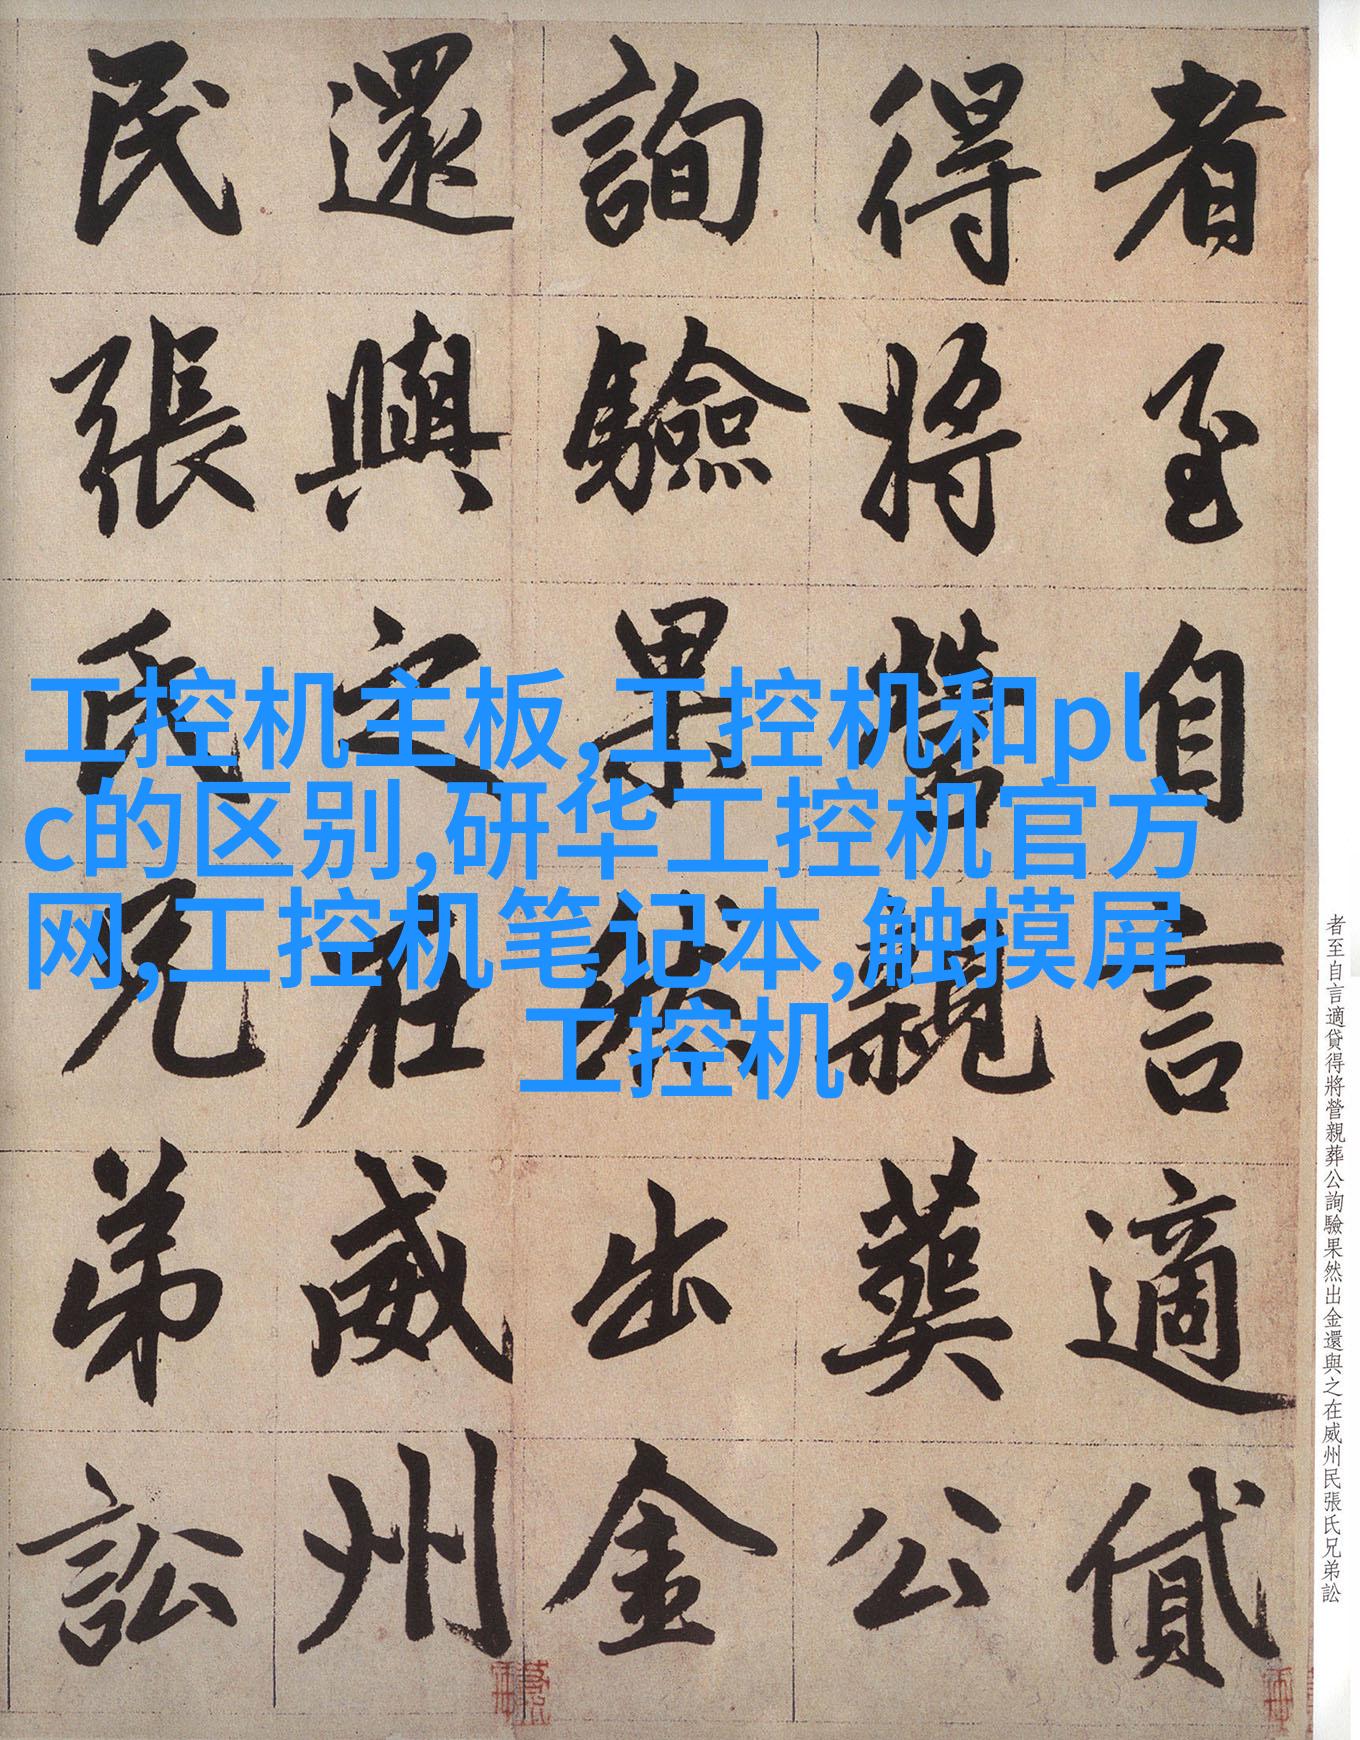 者至自言適貸
得將營親葬公
詢驗果然出金
還與之在威州
民張氏兄弟訟
工控机主板,工控机和pl
c的区别,研华工控机官方
网,工控机笔记本,触摸屏
工控机
者至自言適貸得將營親葬公詢驗果然出金還與之在威州民張氏兄弟訟